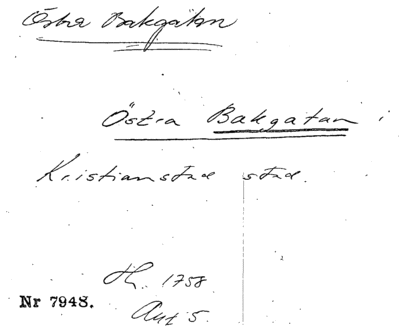 Östra Bakgatan
Östra Bakgatan i
Kristianstad stad.
H. 1758
Nr 7948.
Ant 5.